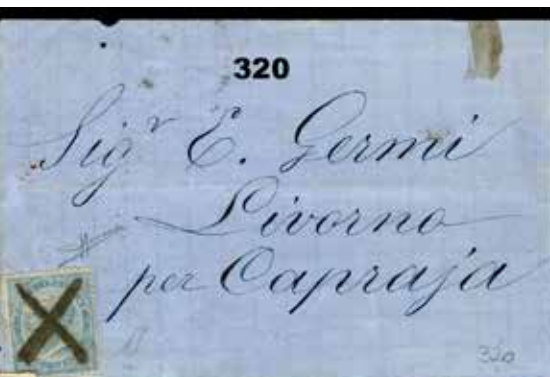 320
Sigr E. Germi
Livorno
per Capraja
320